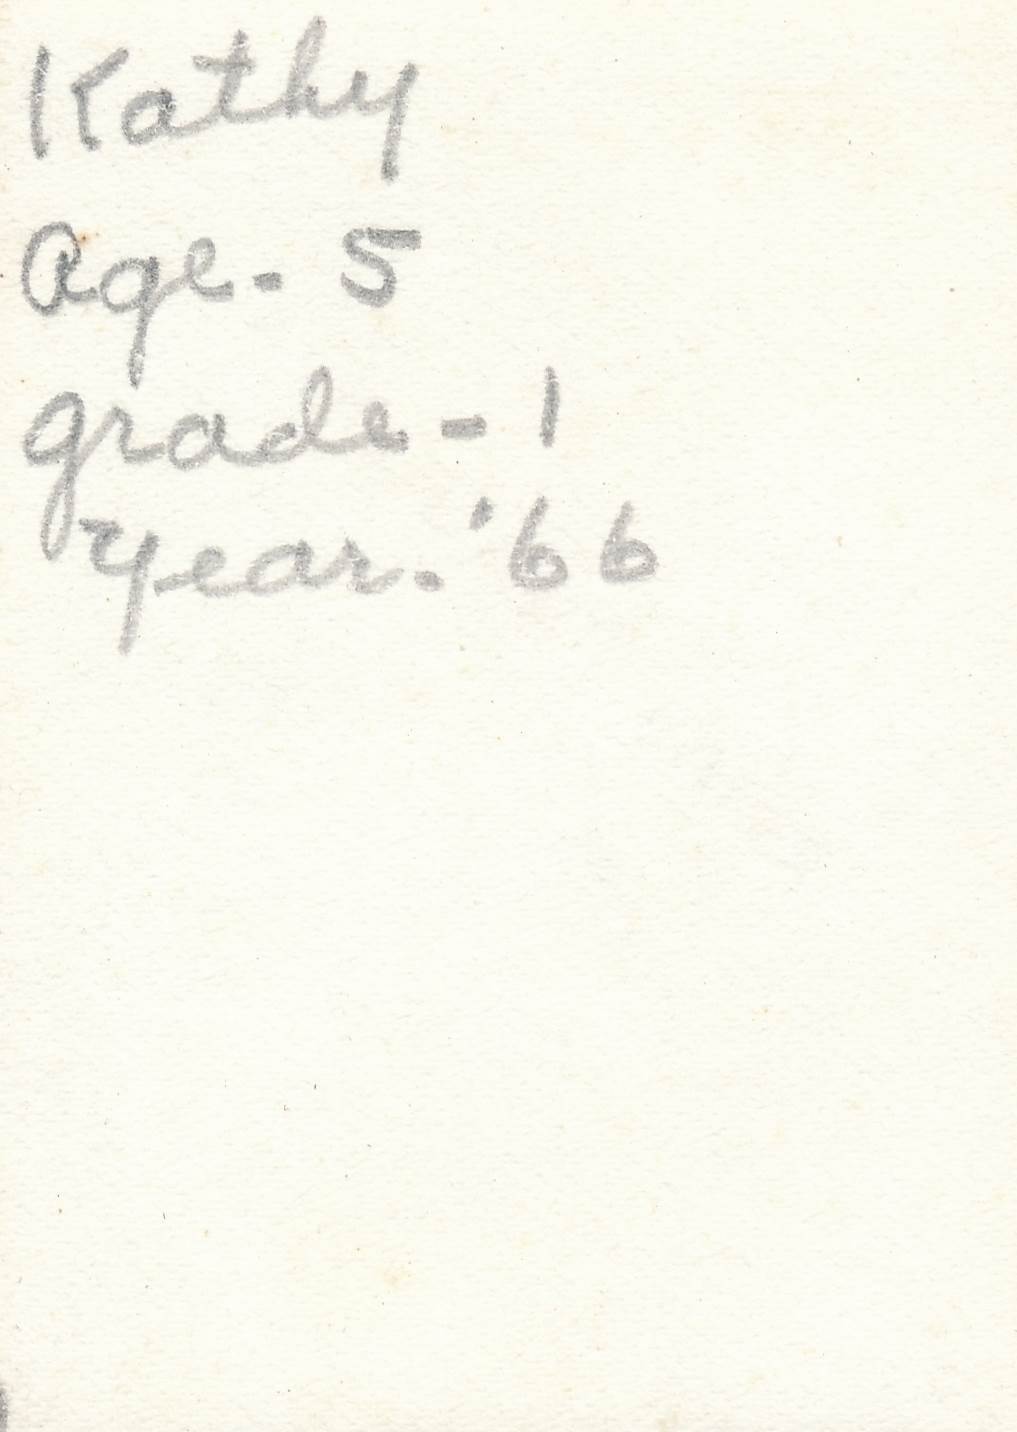 Kathy
Age - 5
grade - 1
Year - '66